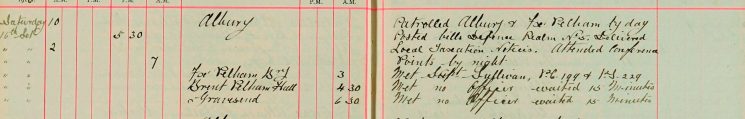 P.M. A.M. P.M. A.M.
Saturday 10 Albury Patrolled Albury & Fx. Pelham by day
16th Sept 5 30 Posted bills Defence Realm No 5. Delivered
" " 2 Local Taxation Notices. Attended Conference
" " 7 Points by night
" " Fx. Pelham 3 Met Supt- Sullivan, P.C. 199 & P.S. 229
" " Brent Pelham Hall 4 30 Met no Officer waited 15 Minutes
" " Gravesend 6 30 Met no Officer waited 15 Minutes